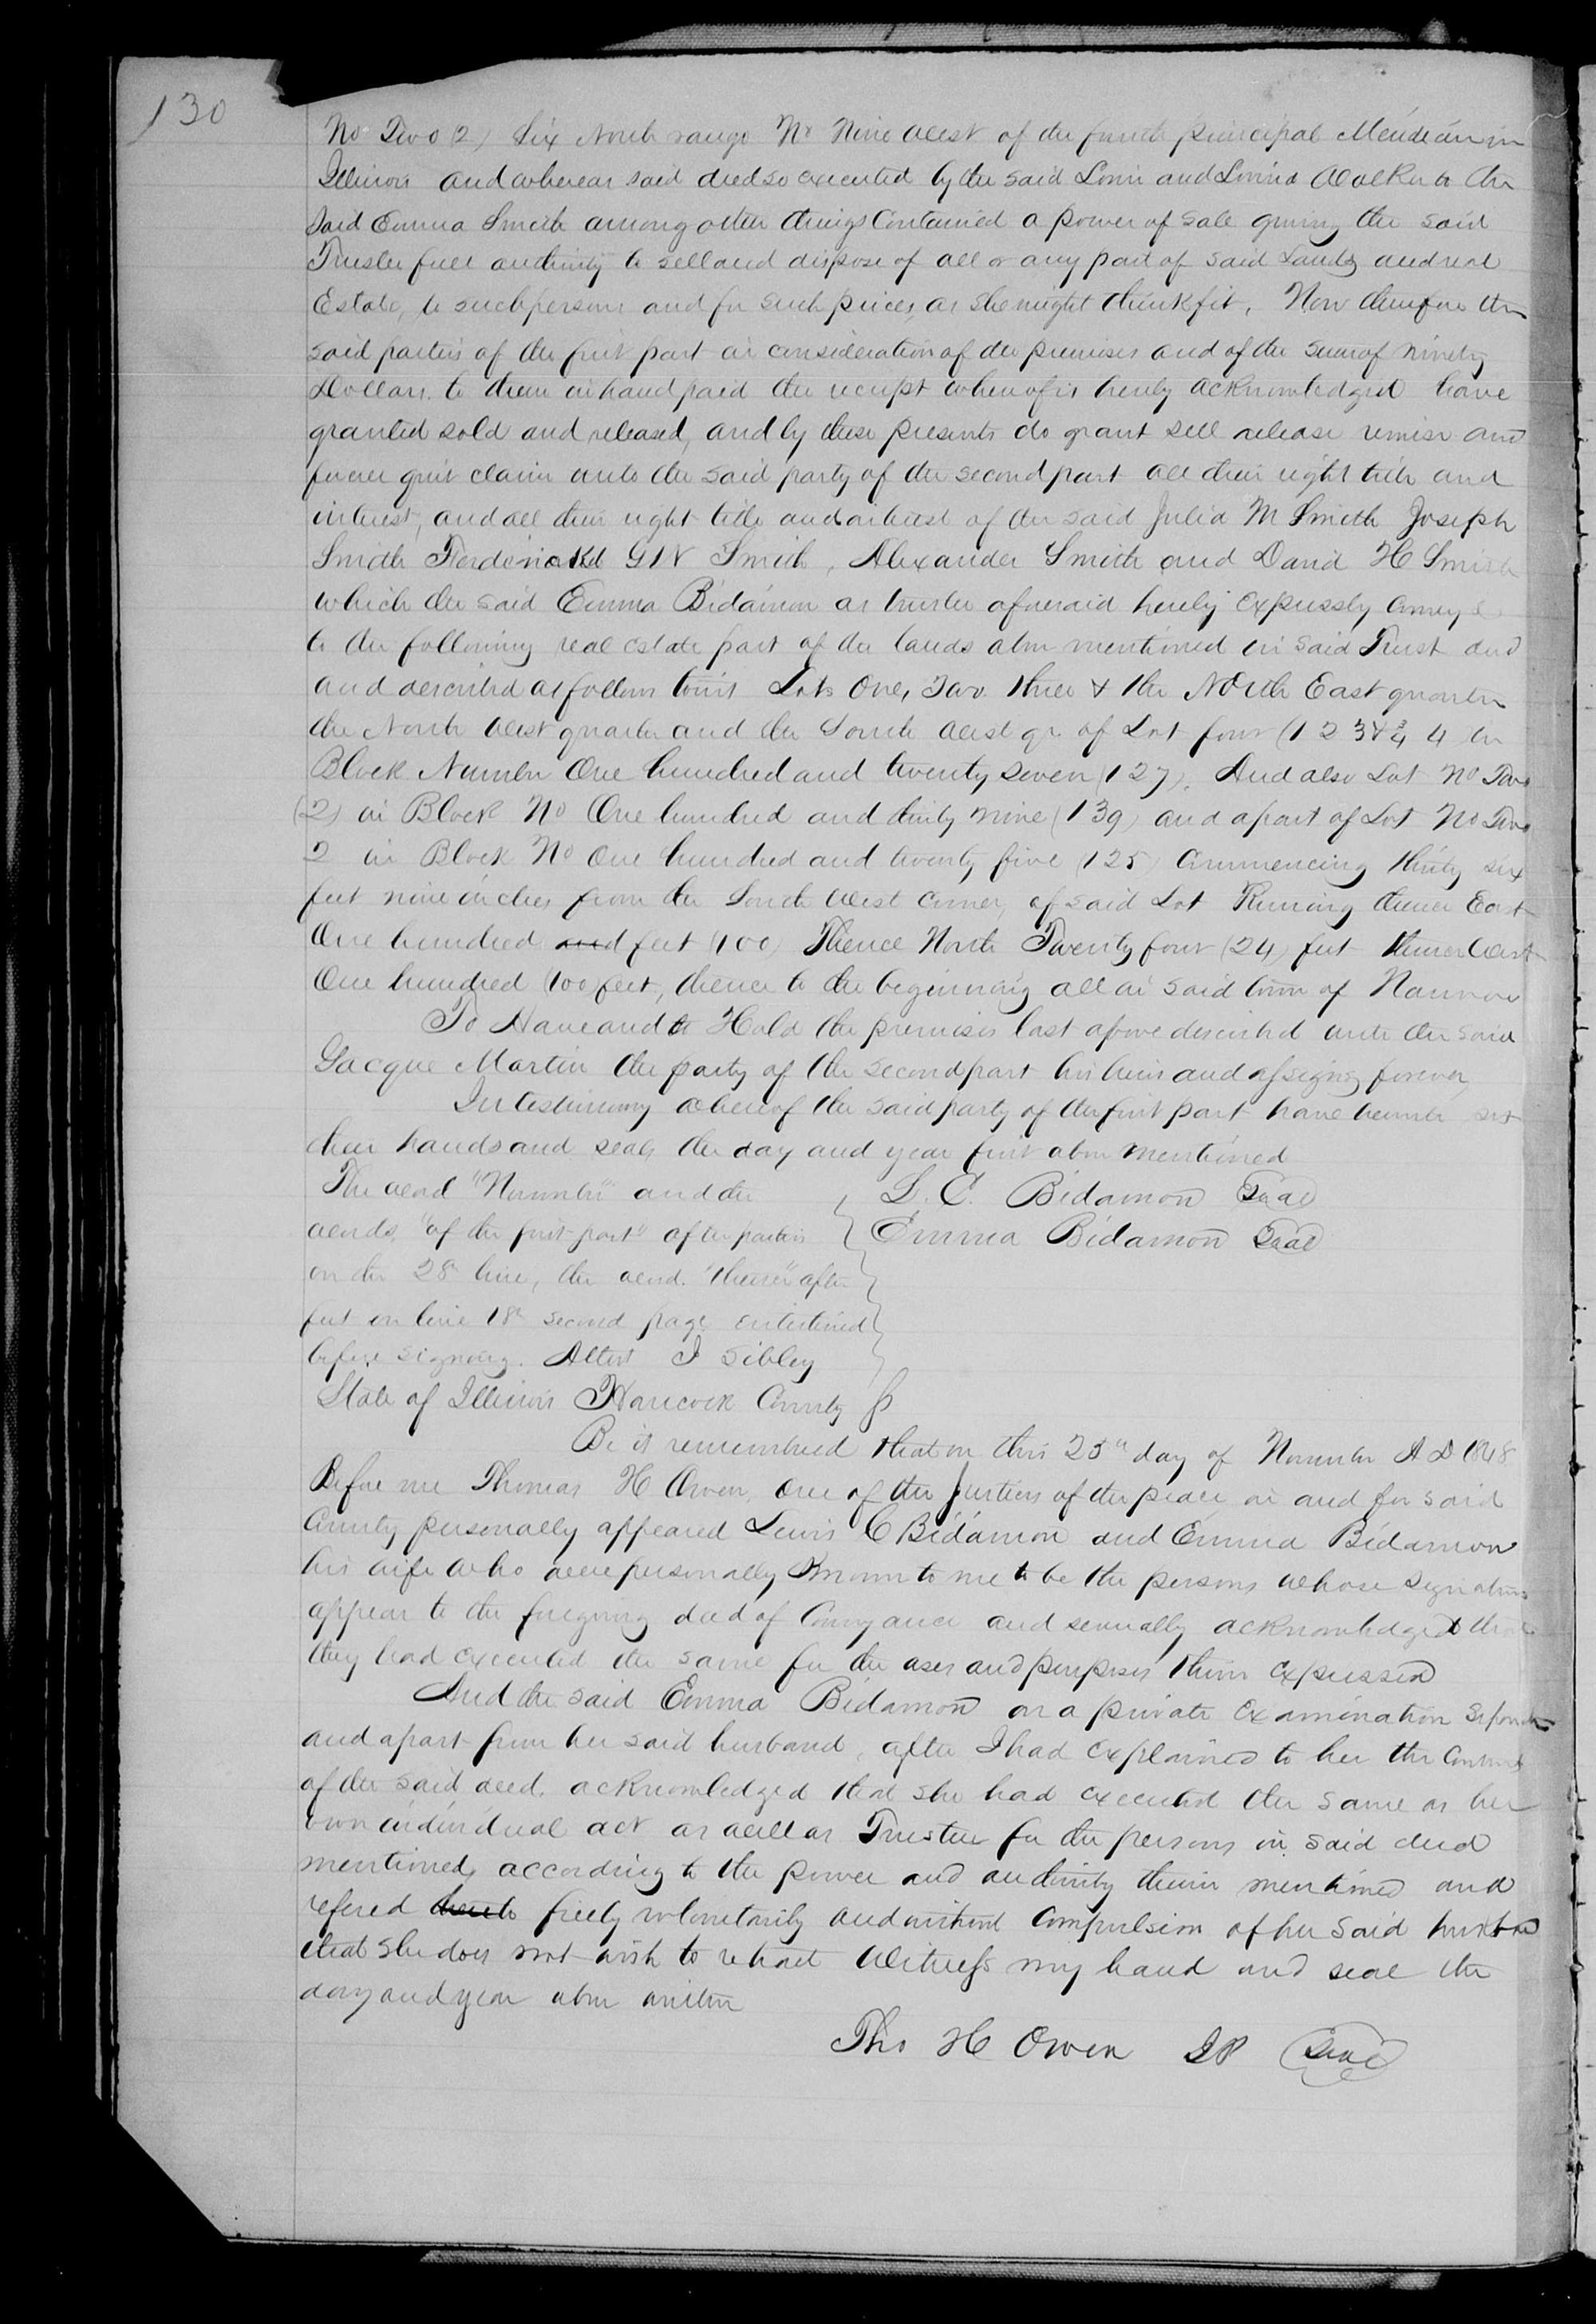 130
No Two (2) Six North range No Nine West of the fourth principal Meridian in
Illinois and whereas said deed so executed by the said Lorin and Lovina Walker to the
said Emma Smith among other things Contained a power of sale giving the said
Trustee full authority to sell and dispose of all or any part of said Lands and real
Estate, to such persons and for such prices, as she might think fit. Now therefore the
said parties of the first part in consideration of the premises and of the sum of ninety
Dollars. to them in hand paid the receipt whereof is hereby acknowledged have
granted sold and released, and by these presents do grant sell release remise and
forever quit claim unto the said party of the second part all their right title and
interest, and all their right title and interest of the said Julia M Smith Joseph
Smith Frederick G W Smith, Alexander Smith and David H Smith
which the said Emma Bidamon as trustee aforesaid hereby expressly conveys
to the following real estate part of the lands above mentioned in said Trust deed
and described as follows towit Lots One, Two. three & the North East quarter
the North West quarter and the South West qr of Lot four (1 2 3 & 3/4 4 in
Block Number One hundred and twenty seven (127). And also Lot No Two
(2) in Block No One hundred and thirty nine (139) and a part of Lot No Two
2 in Block No One hundred and twenty five (125) Commencing thirty six
feet nine inches from the South West corner, of said Lot Running thence East
One hundred and feet (100) Thence North Twenty four (24) feet thence West
One hundred (100 feet, thence to the beginning all in said town of Nauvoo
To Have and to Hold the premises last above described unto the said
Jacque Martin the party of the second part his heirs and assigns forever
In testimony whereof the said party of the first part have hereunto set
their hands and seals the day and year first above mentioned
The word "November" and the
words, "of the first part" after parties
on the 28th line, the word. "thence" after
feet on line 18th second page interlined
before signing. Attest J Sibley
L. C. Bidamon Seal
Emma Bidamon Seal
State of Illinois Hancock County ss
Be it remembered that on this 25th day of November A D 1848
Before me Thomas H Owen, one of the Justices of the peace in and for said
County personally appeared Lewis C Bidamon and Emma Bidamon
his wife who were personally Known to me to be the persons whose signatures
appear to the foregoing deed of Conveyance and severally acknowledged that
they had executed the same for the uses and purposes therein expressed
And the said Emma Bidamon on a private examination separate
and apart from her said husband, after I had explained to her the Contents
of the said deed. acknowledged that she had executed the same as her
own individual act as well as Trustee for the persons in said deed
mentioned, according to the power and authority therein mentioned and
refered freely voluntarily and without Compulsion of her said husband
that she does not wish to retract Witness my hand and seal the
day and year above written
Tho H Owen J P Seal